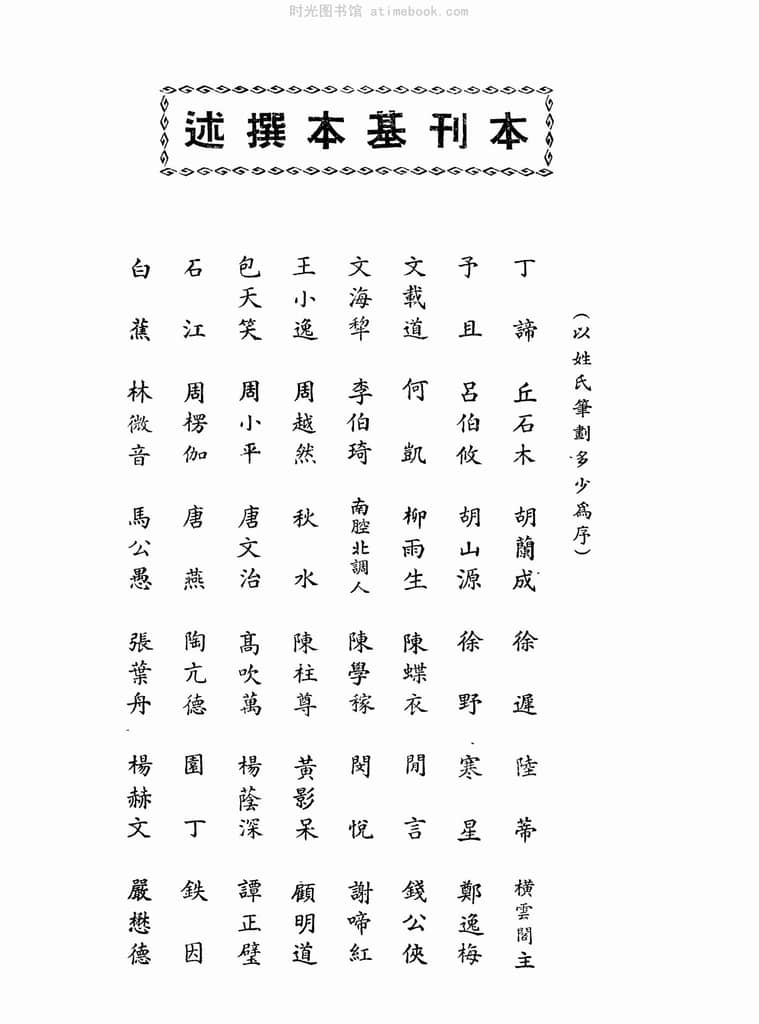 时光图书馆 atimebook.com
本刊基本撰述
（以姓氏筆劃多少爲序）
丁諦
予且
文載道
文海犂
王小逸
包天笑
石江
白蕉
丘石木
呂伯攸
何凱
李伯琦
周越然
周小平
周楞伽
林微音
胡蘭成
胡山源
柳雨生
南腔北調人
秋水
唐文治
唐燕
馬公愚
徐遲
徐野
陳蝶衣
陳學稼
陳柱尊
高吹萬
陶亢德
張葉舟
陸蒂
寒星
閒言
閔悅
黃影呆
楊蔭深
園丁
楊赫文
橫雲閣主
鄭逸梅
錢公俠
謝啼紅
顧明道
譚正璧
鉄因
嚴懋德